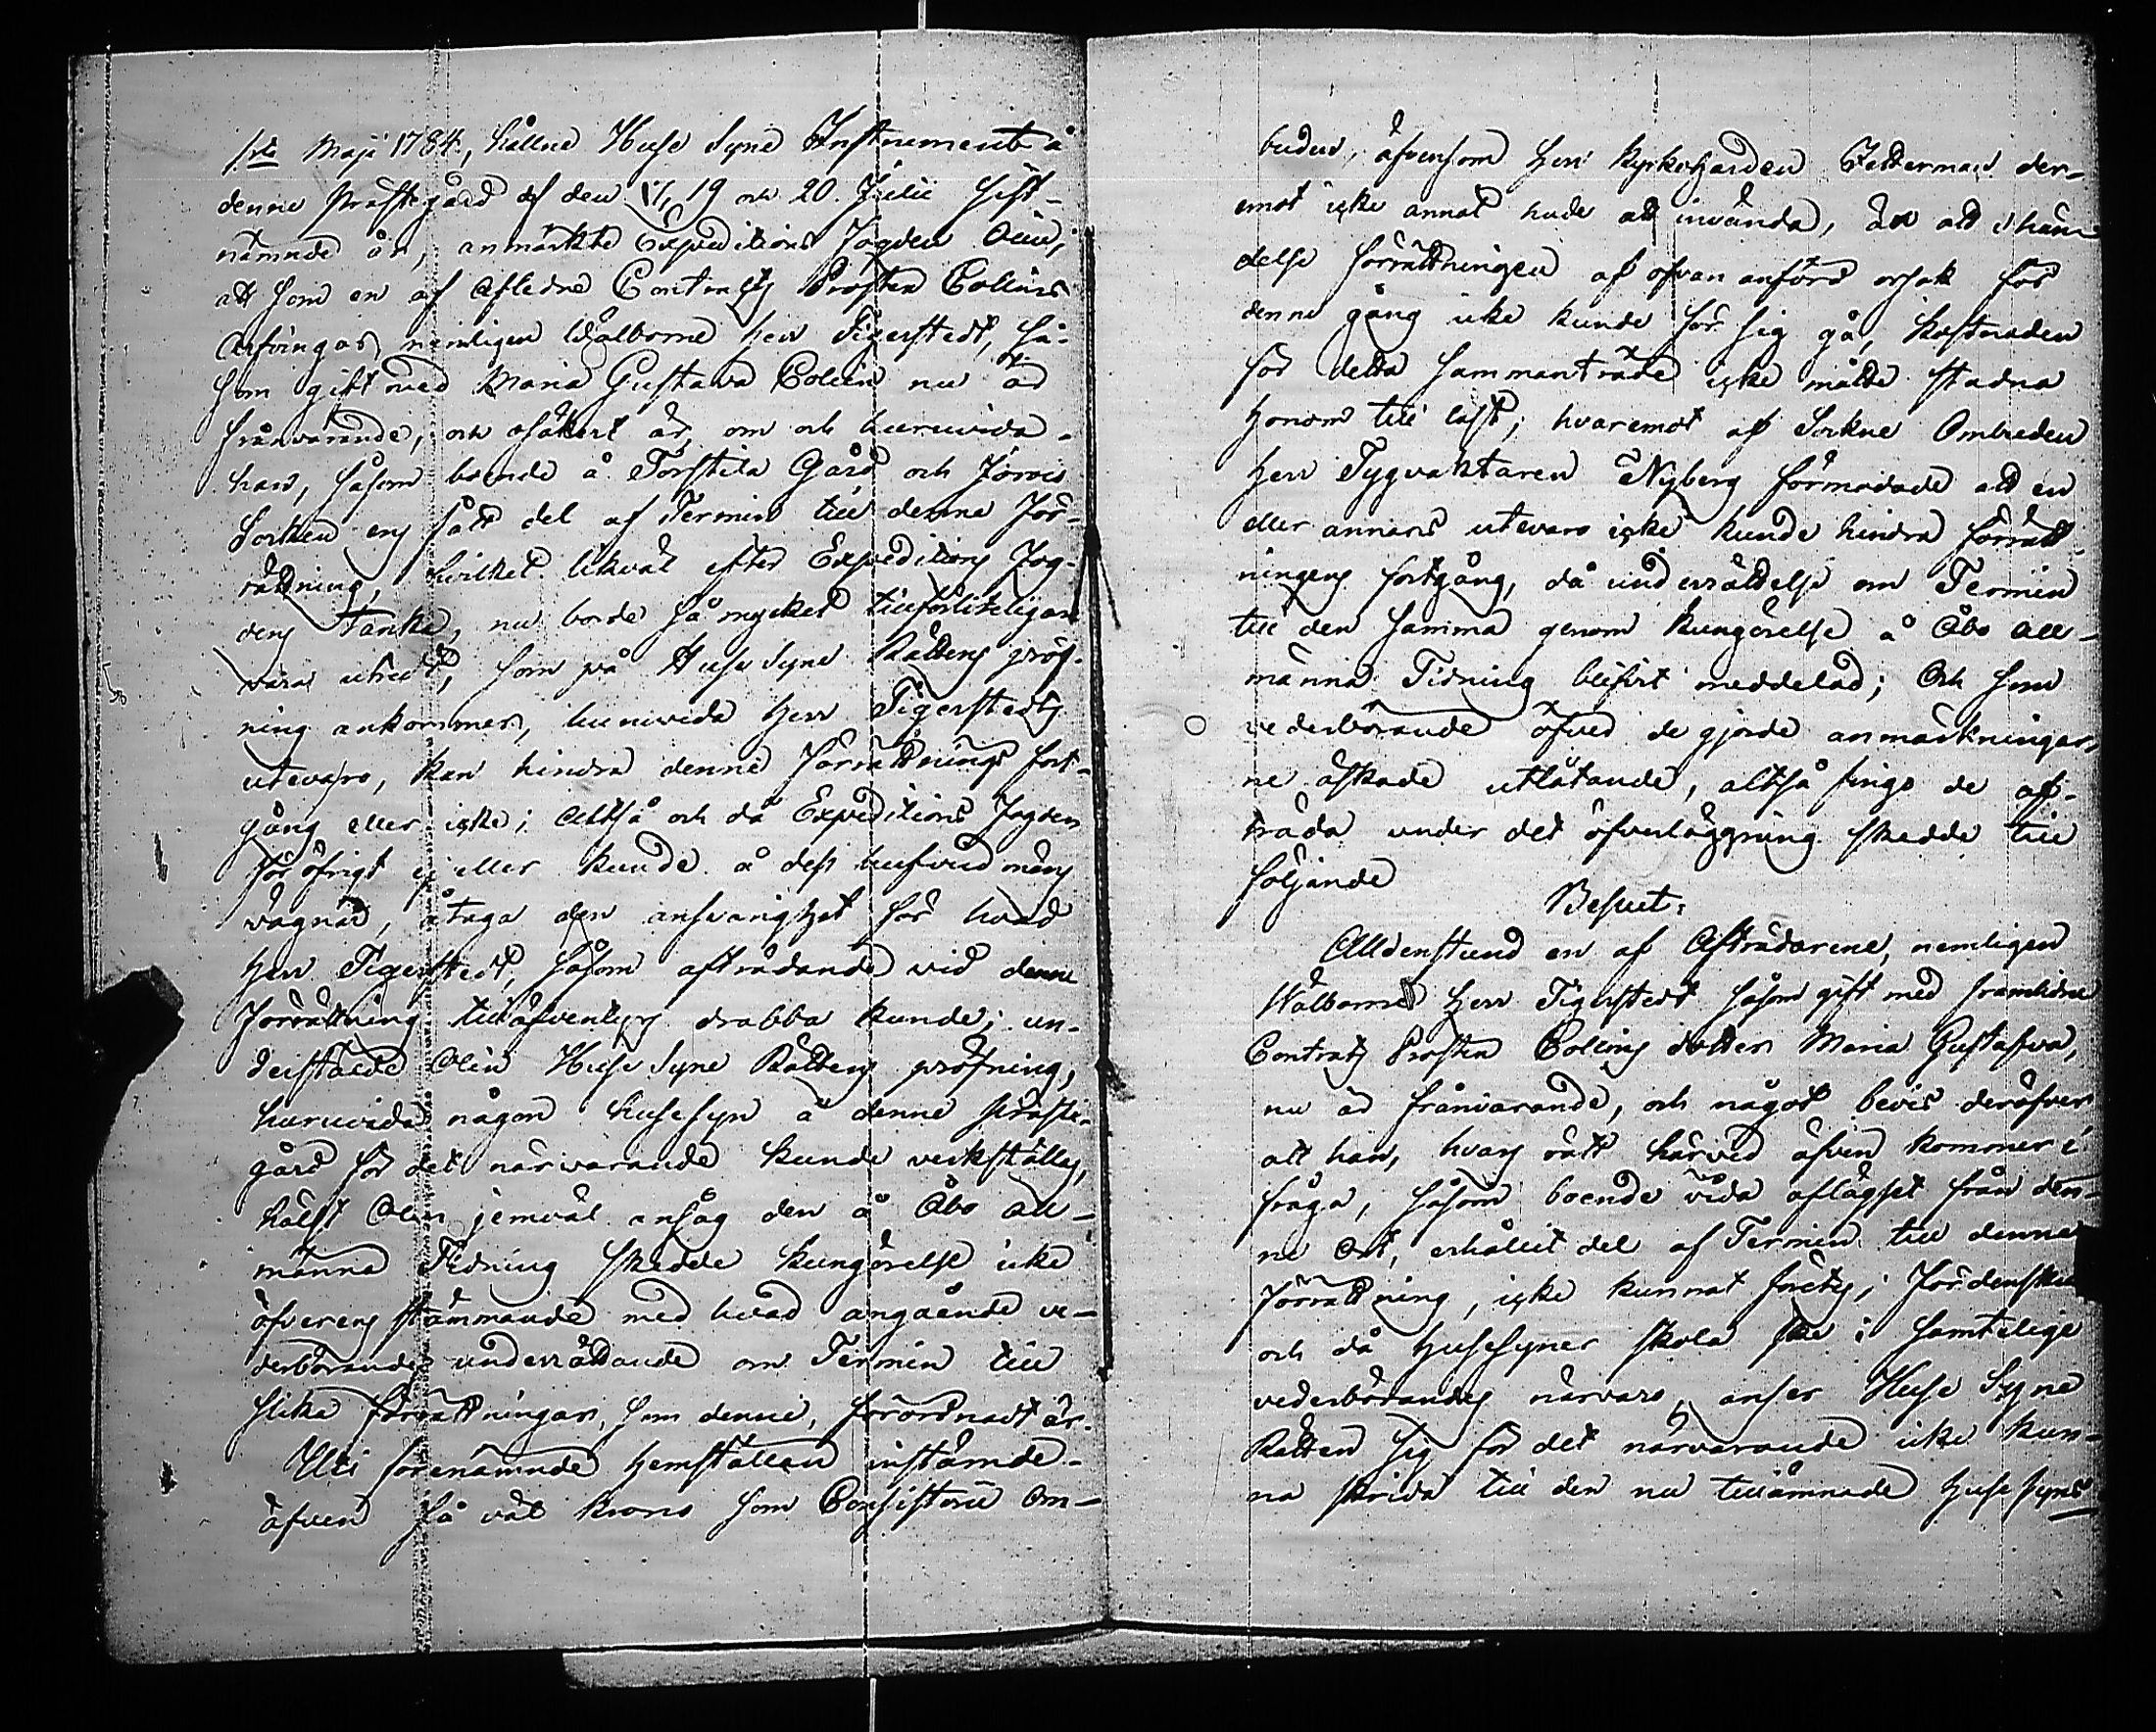 1sta Maji 1784, hållne Huse Syne Instrument å
denne Prästegård af den 17, 19 och 20. Julii sist-
nämnde år, anmärkte Expeditions Fogden Olin,
att som en af Aflidne Contracts Prosten Collins
Arfvingar, nemligen Wälborne Herr Tigerstedt, så-
som gift med Maria Gustava Collin nu är
frånvarande, och osäkert är, om och huruvida
han, såsom boende å Torstila Gård och Jorois
Socken ens fått del af Termin till denne För-
rättning, hvilket likväl efter Expeditions Fog-
dens Tanke, nu borde så mycket tillförliteligare
vara utredt, som på Huse Syne Rättens pröf-
ning ankommer, huruvida Herr Tigerstedts
utevaro, kan hindra denne Förrättnings fort-
gång eller icke; Alltså och då Expeditions Fogden
för öfrigt ej eller kunde å dess hufvudmans
vägnar, åtaga den ansvarighet för hvad
Herr Tigerstedt, såsom afträdande vid denne
Förrättning tilläfventyrs drabba kunde; un-
derstälde Olin Huse Syne Rättens pröfning,
huruvida någon husesyn å denne Präste-
gård för det närvarande kunde verkställas,
hälst Olin jemväl ansåg den å Åbo All-
männa Tidning skedde kungörelse icke
öfverens stämmande med hvad angående ve-
derbörandes underrättande om Termin till
slika förrättningar, som denne, förordnadt är.
Uti förenämnde hemställan instämde
äfven så väl Krono som Consistorii Om-
buden, äfvensom Herr Kyrkoherden Fetterman der-
emot icke annat hade att invända, än att i hän-
delse förrättningen af ofvan anförd orsak för
denne gång icke kunde för sig gå, kostnaden
för detta Sammanträde icke måtte stadna
honom till last; hvaremot af Sockne Ombuden
Herr Tygvaktaren Nyberg förmodade att en
eller annars utevaro icke kunde hindra förrätt-
ningens fortgång, då underrättelse om Termin
till den samma genom kungörelse å Åbo All-
männa Tidning blifvit meddelad; Och som
vederbörande öfver de gjorde anmärkningar-
ne äskade utlåtande, altså fingo de af-
träda under det öfverläggning skedde till
följande
Beslut:
Alldenstund en af Afträdarene, nemligen
Wälborne Herr Tigerstedt såsom gift med framlidne
Contracts Prosten Collins dotter Maria Gustafva,
nu är frånvarande, och något bevis deröfver
att han, hvars rätt härvid äfven kommer i
fråga, såsom boende vida aflägset från den-
ne Ort, erhållit del af Termin till denne
Förrättning, icke kunnat företes; Fördenskull
och då Husesyner skola ske i samtelige
vederbörandes närvaro, anser Huse Syne
Rätten sig för det närvarande icke kun-
na skrida till den nu tillämnade Huse syns